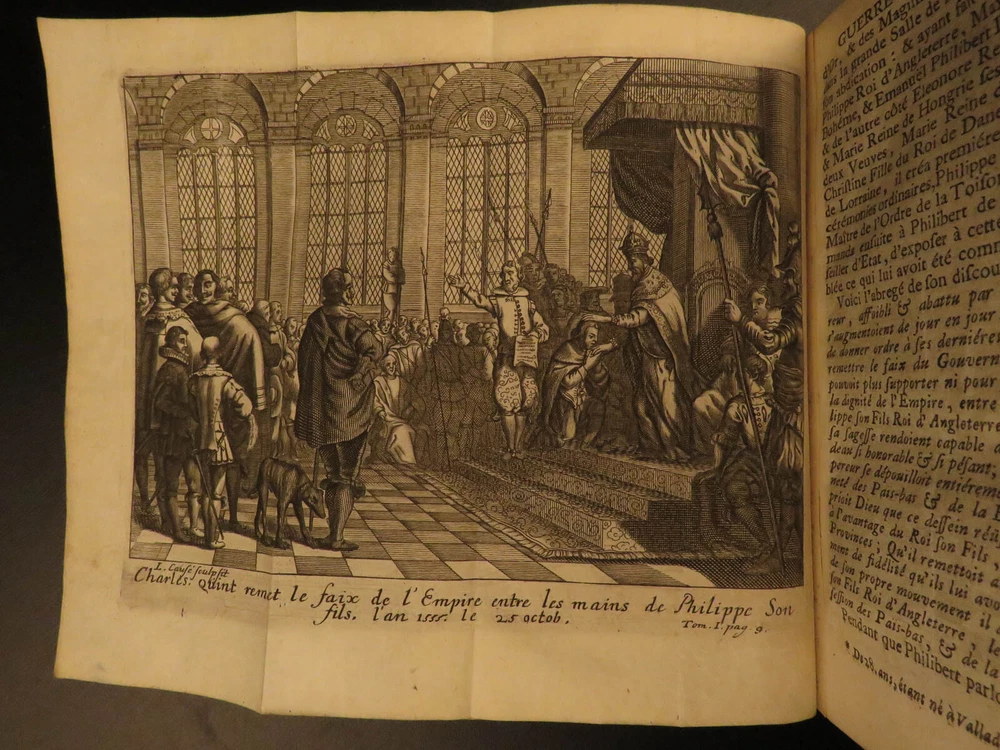 I. Causé sculpsit
Charles. Quint remet le faix de l'Empire entre les mains de Philippe Son
fils. l'an 1555. le 25 octob.
Tom. I. pag. 9.
GUERRE
& des Magi
dans la grande Salle de
son abdication: & ayant fait
Philippe Roi d'Angleterre, Ma
Bohême, & Emanuël Philibert
& de l'autre côté Eleonore R
& Marie Reine de Hongrie ses
deux Veuves, Marie Reine
Christine Fille du Roi de Dan
de Lorraine, il créa premiére
cérémonies ordinaires, Philippe
Maître de l'Ordre de la Toison
manda ensuite à Philibert de
seiller d'Etat, d'exposer à cette
blée ce qui lui avoit été comm
Voici l'abregé de son discou
reur, affoibli & abattu par
s'augmentoient de jour en jour
de donner ordre à ses derniére
remettre le faix du Gouvern
pouvoit plus supporter ni pour
la dignité de l'Empire, entre
lippe son Fils Roi d'Angleterre
sa sagesse rendoient capable
deau si honorable & si pésant;
pereur se dépouilloit entiérem
neté des Pais-bas & de la
prioit Dieu que ce dessein réü
à l'avantage du Roi son Fils
Provinces; Qu'il remettoit
ment de fidélité qu'ils lui avo
de son propre mouvement il
son Fils Roi d'Angleterre, le
session des Pais-bas, & de la
Pendant que Philibert parlo
* De 28. ans, étant né à Vallad